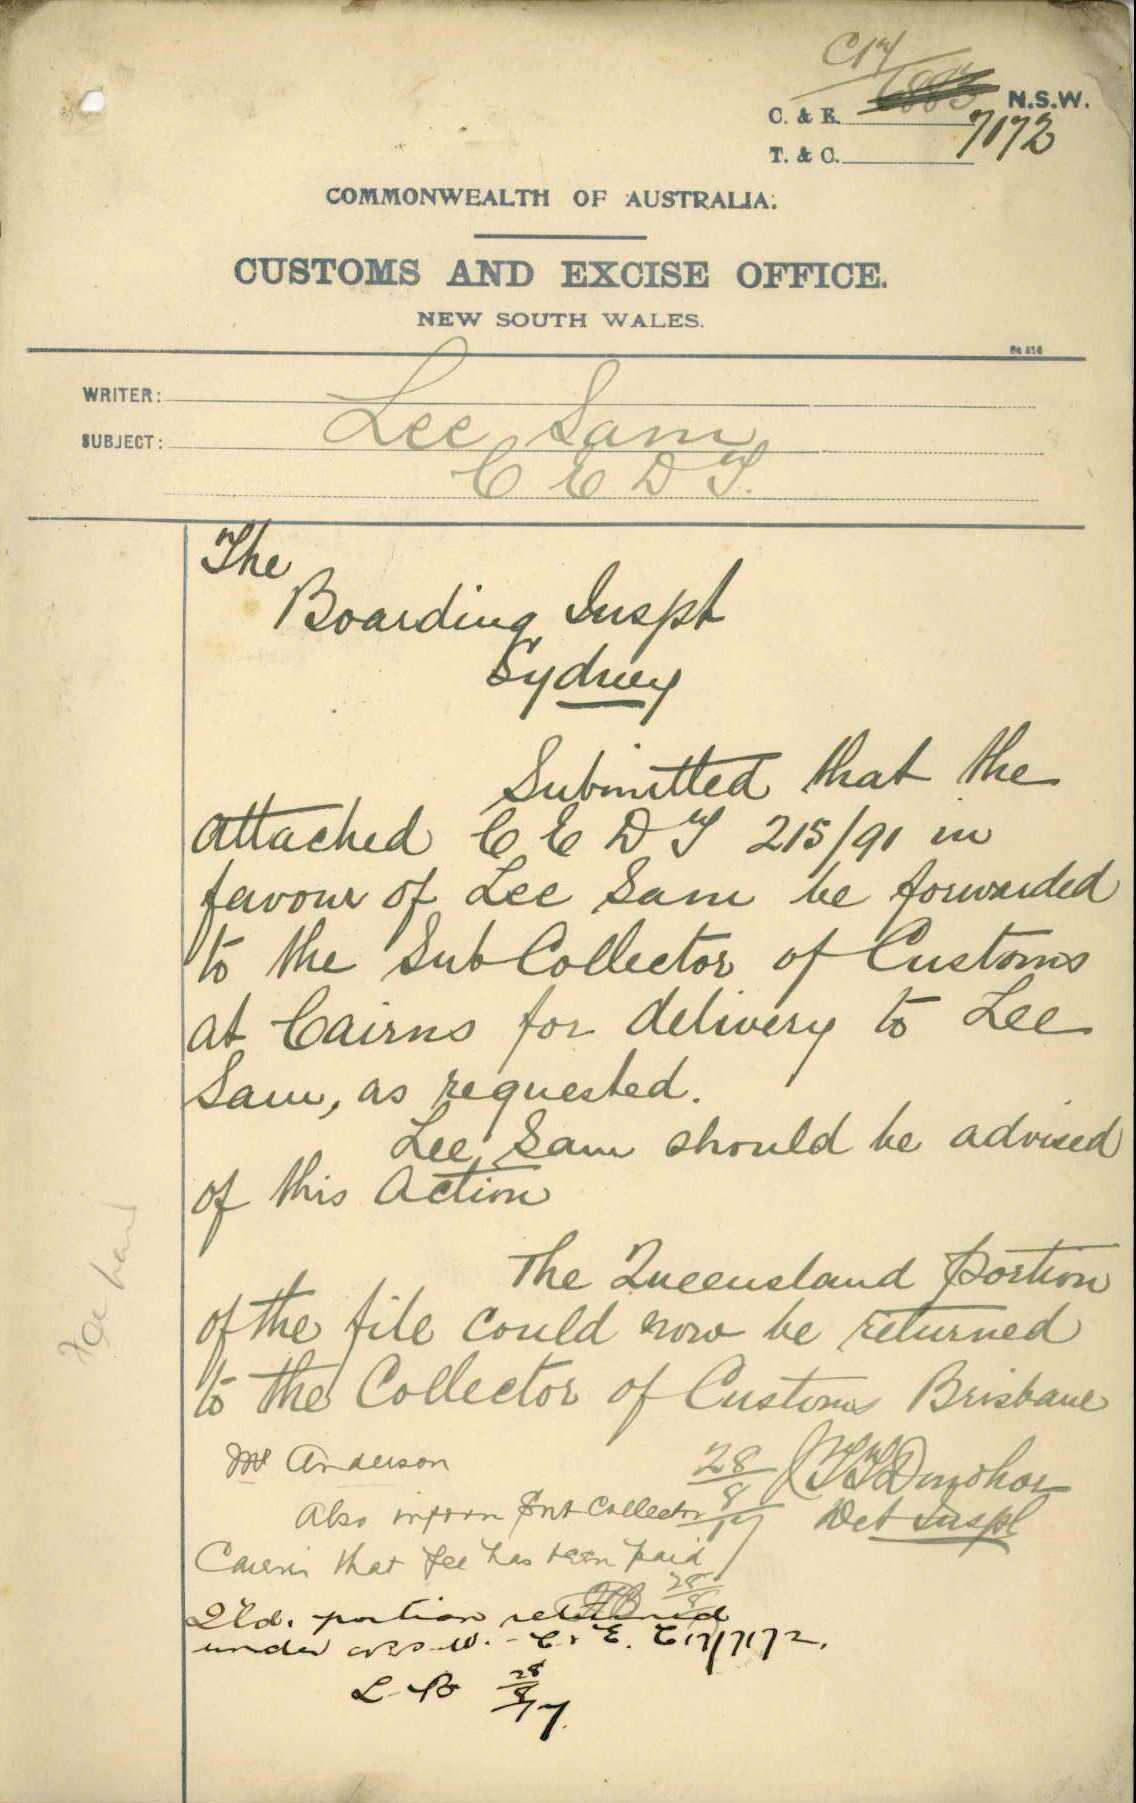 C17/
C. & E. 6883 N.S.W.
7172
T. & C.
COMMONWEALTH OF AUSTRALIA.
CUSTOMS AND EXCISE OFFICE.
NEW SOUTH WALES.
WRITER:
SUBJECT: Lee Sam
C E D T.
The
Boarding Inspt
Sydney
Submitted that the
attached C E D T 215/91 in
favour of Lee Sam be forwarded
to the Sub Collector of Customs
at Cairns for delivery to Lee
Sam, as requested.
Lee Sam should be advised
of this Action
The Queensland portion
of the file could now be returned
to the Collector of Customs Brisbane
Fee paid
Mr Anderson
28/8/17 Donohoe
Det Inspt
Also inform Sub Collector
Cairns that fee has been paid
28/8
Qld. portion returned
under N.S.W. - C & E. C17/7172.
L-B 28/8/17.